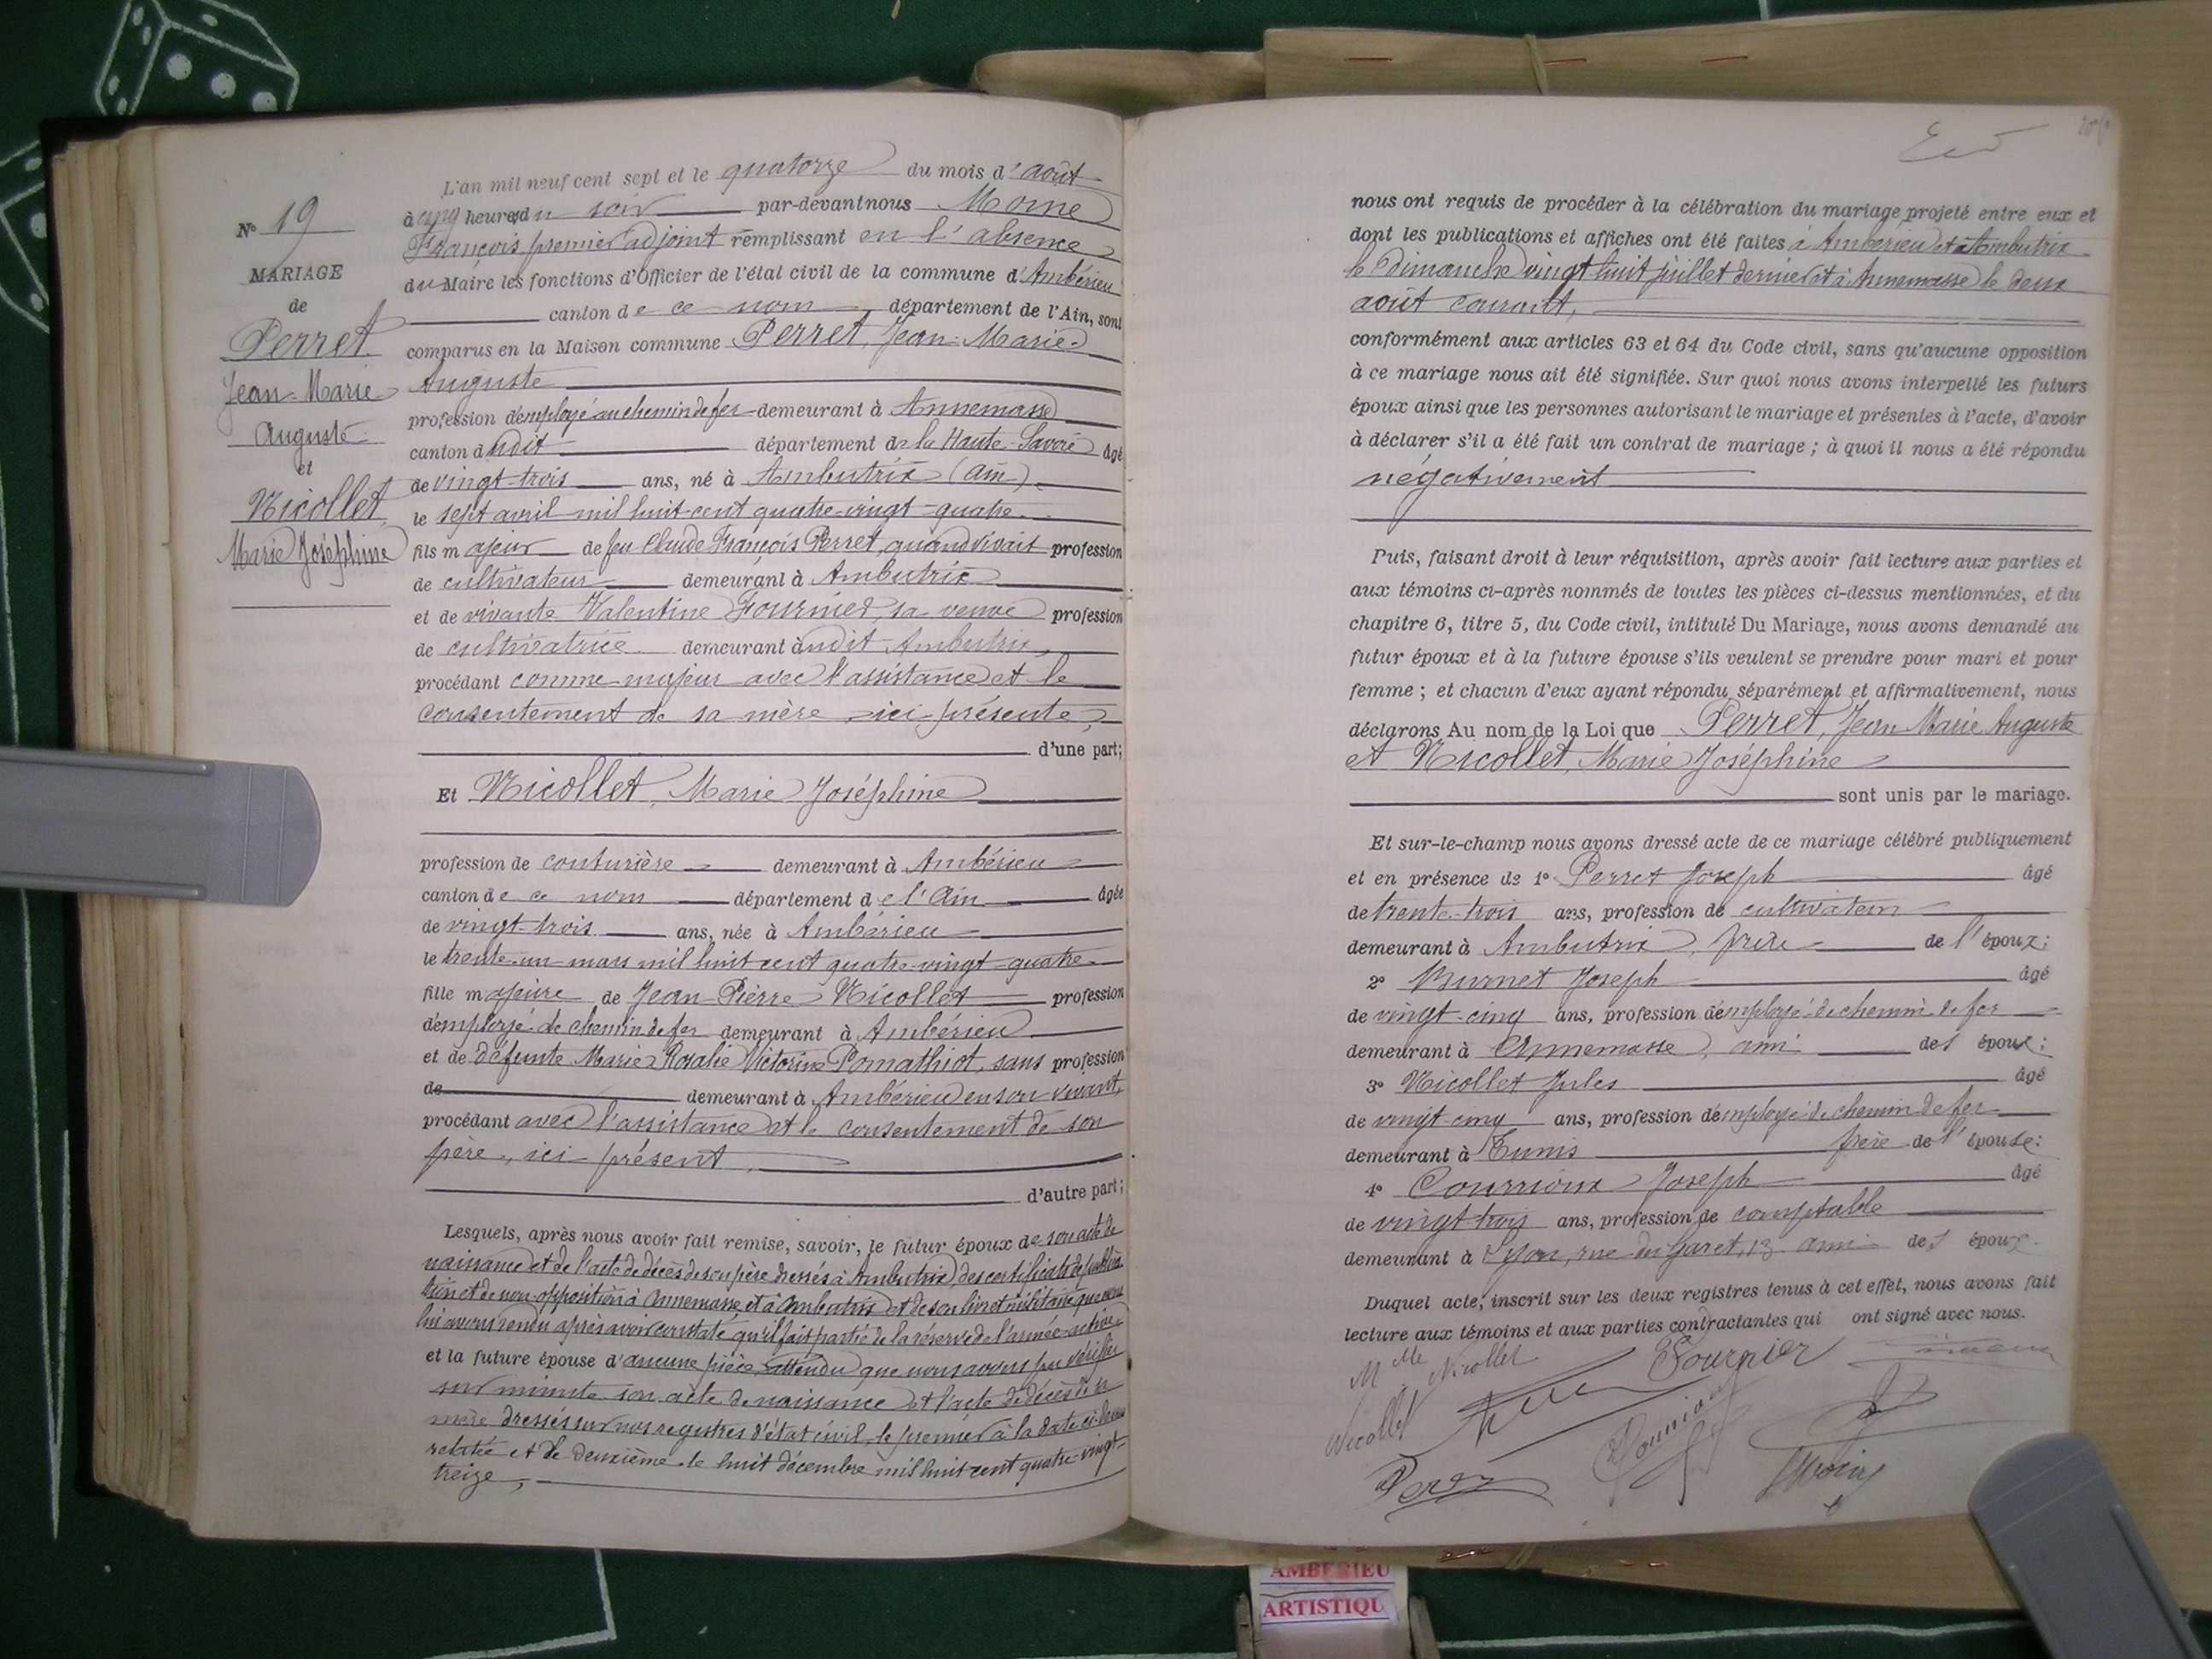 N° 19
MARIAGE
de
Perret
Jean-Marie
Auguste
et
Nicollet
Marie Joséphine
L'an mil neuf cent sept et le quatorze du mois d'août
à cinq heures du soir par-devant nous Moine
François premier adjoint remplissant en l'absence
du Maire les fonctions d'Officier de l'état civil de la commune d'Ambérieu
canton de ce nom département de l'Ain, sont
comparus en la Maison commune Perret, Jean-Marie
Auguste
profession d'employé au chemin de fer demeurant à Annemasse
canton dudit département de la Haute-Savoie âgé
de vingt-trois ans, né à Ambutrix (Ain)
le sept avril mil huit cent quatre-vingt-quatre
fils majeur de feu Claude François Perret, quand vivait profession
de cultivateur demeurant à Ambutrix
et de vivante Valentine Fournier, sa veuve profession
de cultivatrice demeurant audit Ambutrix
procédant comme majeur avec l'assistance et le
consentement de sa mère ici présente,
d'une part;
Et Nicollet, Marie Joséphine
profession de couturière demeurant à Ambérieu
canton de ce nom département de l'Ain âgée
de vingt-trois ans, née à Ambérieu
le trente-un mars mil huit cent quatre-vingt-quatre
fille majeure de Jean-Pierre Nicollet profession
d'employé de chemin de fer demeurant à Ambérieu
et de défunte Marie Rosalie Victorine Pomathiot, sans profession
de demeurant à Ambérieu en son vivant,
procédant avec l'assistance et le consentement de son
père, ici présent,
d'autre part;
Lesquels, après nous avoir fait remise, savoir, le futur époux de son acte de
naissance et de l'acte de décès de son père dressés à Ambutrix, des certificats de publica
tion et de non-opposition à Annemasse et à Ambutrix et de son livret militaire que nous
lui avons rendu après avoir constaté qu'il fait partie de la réserve de l'armée active
et la future épouse d'aucune pièce attendu que nous avons pu vérifier
sur minute son acte de naissance et l'acte de décès de sa
mère dressés sur nos registres d'état civil, le premier à la date ci-dessus
relatée et le deuxième le huit décembre mil huit cent quatre-vingt-
treize,
nous ont requis de procéder à la célébration du mariage projeté entre eux et
dont les publications et affiches ont été faites à Ambérieu et à Ambutrix
le Dimanche vingt huit juillet dernier et à Annemasse le deux
août courant,
conformément aux articles 63 et 64 du Code civil, sans qu'aucune opposition
à ce mariage nous ait été signifiée. Sur quoi nous avons interpellé les futurs
époux ainsi que les personnes autorisant le mariage et présentes à l'acte, d'avoir
à déclarer s'il a été fait un contrat de mariage ; à quoi il nous a été répondu
négativement
Puis, faisant droit à leur réquisition, après avoir fait lecture aux parties et
aux témoins ci-après nommés de toutes les pièces ci-dessus mentionnées, et du
chapitre 6, titre 5, du Code civil, intitulé Du Mariage, nous avons demandé au
futur époux et à la future épouse s'ils veulent se prendre pour mari et pour
femme ; et chacun d'eux ayant répondu séparément et affirmativement, nous
déclarons Au nom de la Loi que Perret, Jean Marie Auguste
et Nicollet, Marie Joséphine
sont unis par le mariage.
Et sur-le-champ nous avons dressé acte de ce mariage célébré publiquement
et en présence de 1° Perret Joseph âgé
de trente-trois ans, profession de cultivateur
demeurant à Ambutrix, frère de l'époux;
2° Burnet Joseph âgé
de vingt-cinq ans, profession d'employé de chemin de fer
demeurant à Annemasse, ami des époux;
3° Nicollet Jules âgé
de vingt-cinq ans, profession d'employé de chemin de fer
demeurant à Tunis frère de l'épouse;
4° Courrioux Joseph âgé
de vingt-trois ans, profession de comptable
demeurant à Lyon, rue du Garet, 13 ami des époux.
Duquel acte, inscrit sur les deux registres tenus à cet effet, nous avons fait
lecture aux témoins et aux parties contractantes qui ont signé avec nous.
Mlle Nicollet
Fournier
Nicollet
Perret
Moine
AMBERIEU
ARTISTIQU